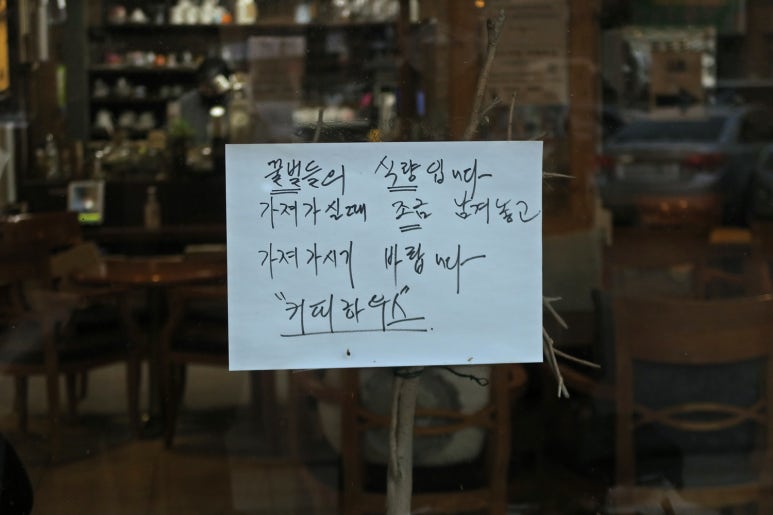 꿀벌들의 식량입니다
가져가실때 조금 남겨놓고
가져가시기 바랍니다
"커피하우스".